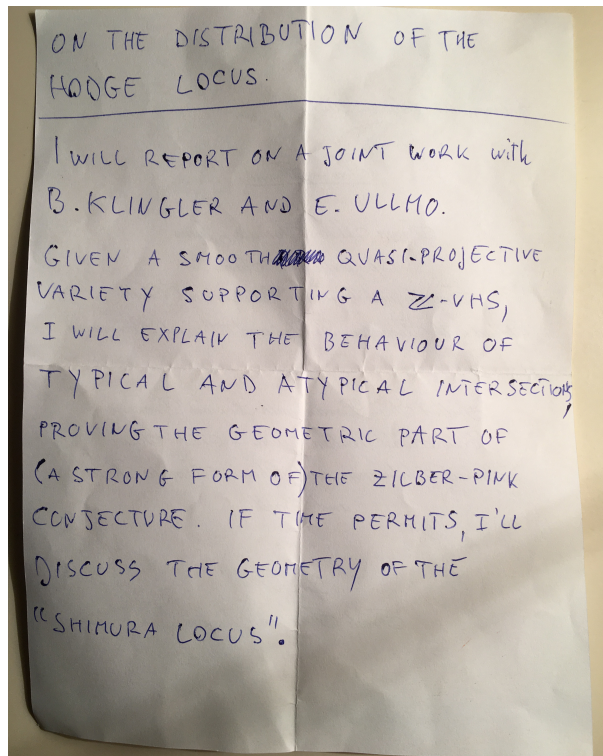 ON THE DISTRIBUTION OF THE
HODGE LOCUS.
I WILL REPORT ON A JOINT WORK with
B. KLINGLER AND E. ULLMO.
GIVEN A SMOOTH QUASI-PROJECTIVE
VARIETY SUPPORTING A ℤ-VHS,
I WILL EXPLAIN THE BEHAVIOUR OF
TYPICAL AND ATYPICAL INTERSECTIONS,
PROVING THE GEOMETRIC PART OF
(A STRONG FORM OF) THE ZILBER-PINK
CONJECTURE. IF TIME PERMITS, I'LL
DISCUSS THE GEOMETRY OF THE
"SHIMURA LOCUS".